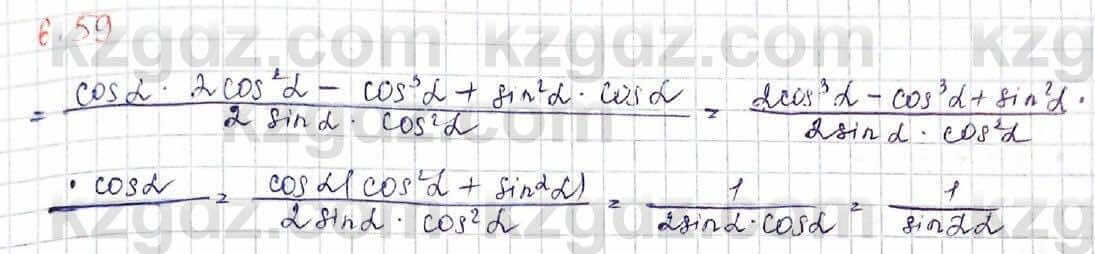 6.59
kzgdz.com kzgdz.com kz
= (cosα · 2cos²α − cos³α + sin²α · cosα) / (2 sinα · cos²α) = (2cos³α − cos³α + sin²α ·) / (2sinα · cos²α)
kzgdz.com
· cosα / = (cosα(cos²α + sin²α)) / (2sinα · cos²α) = 1 / (2sinα · cosα) = 1 / sin2α
kzgdz.com kzgdz.com kz